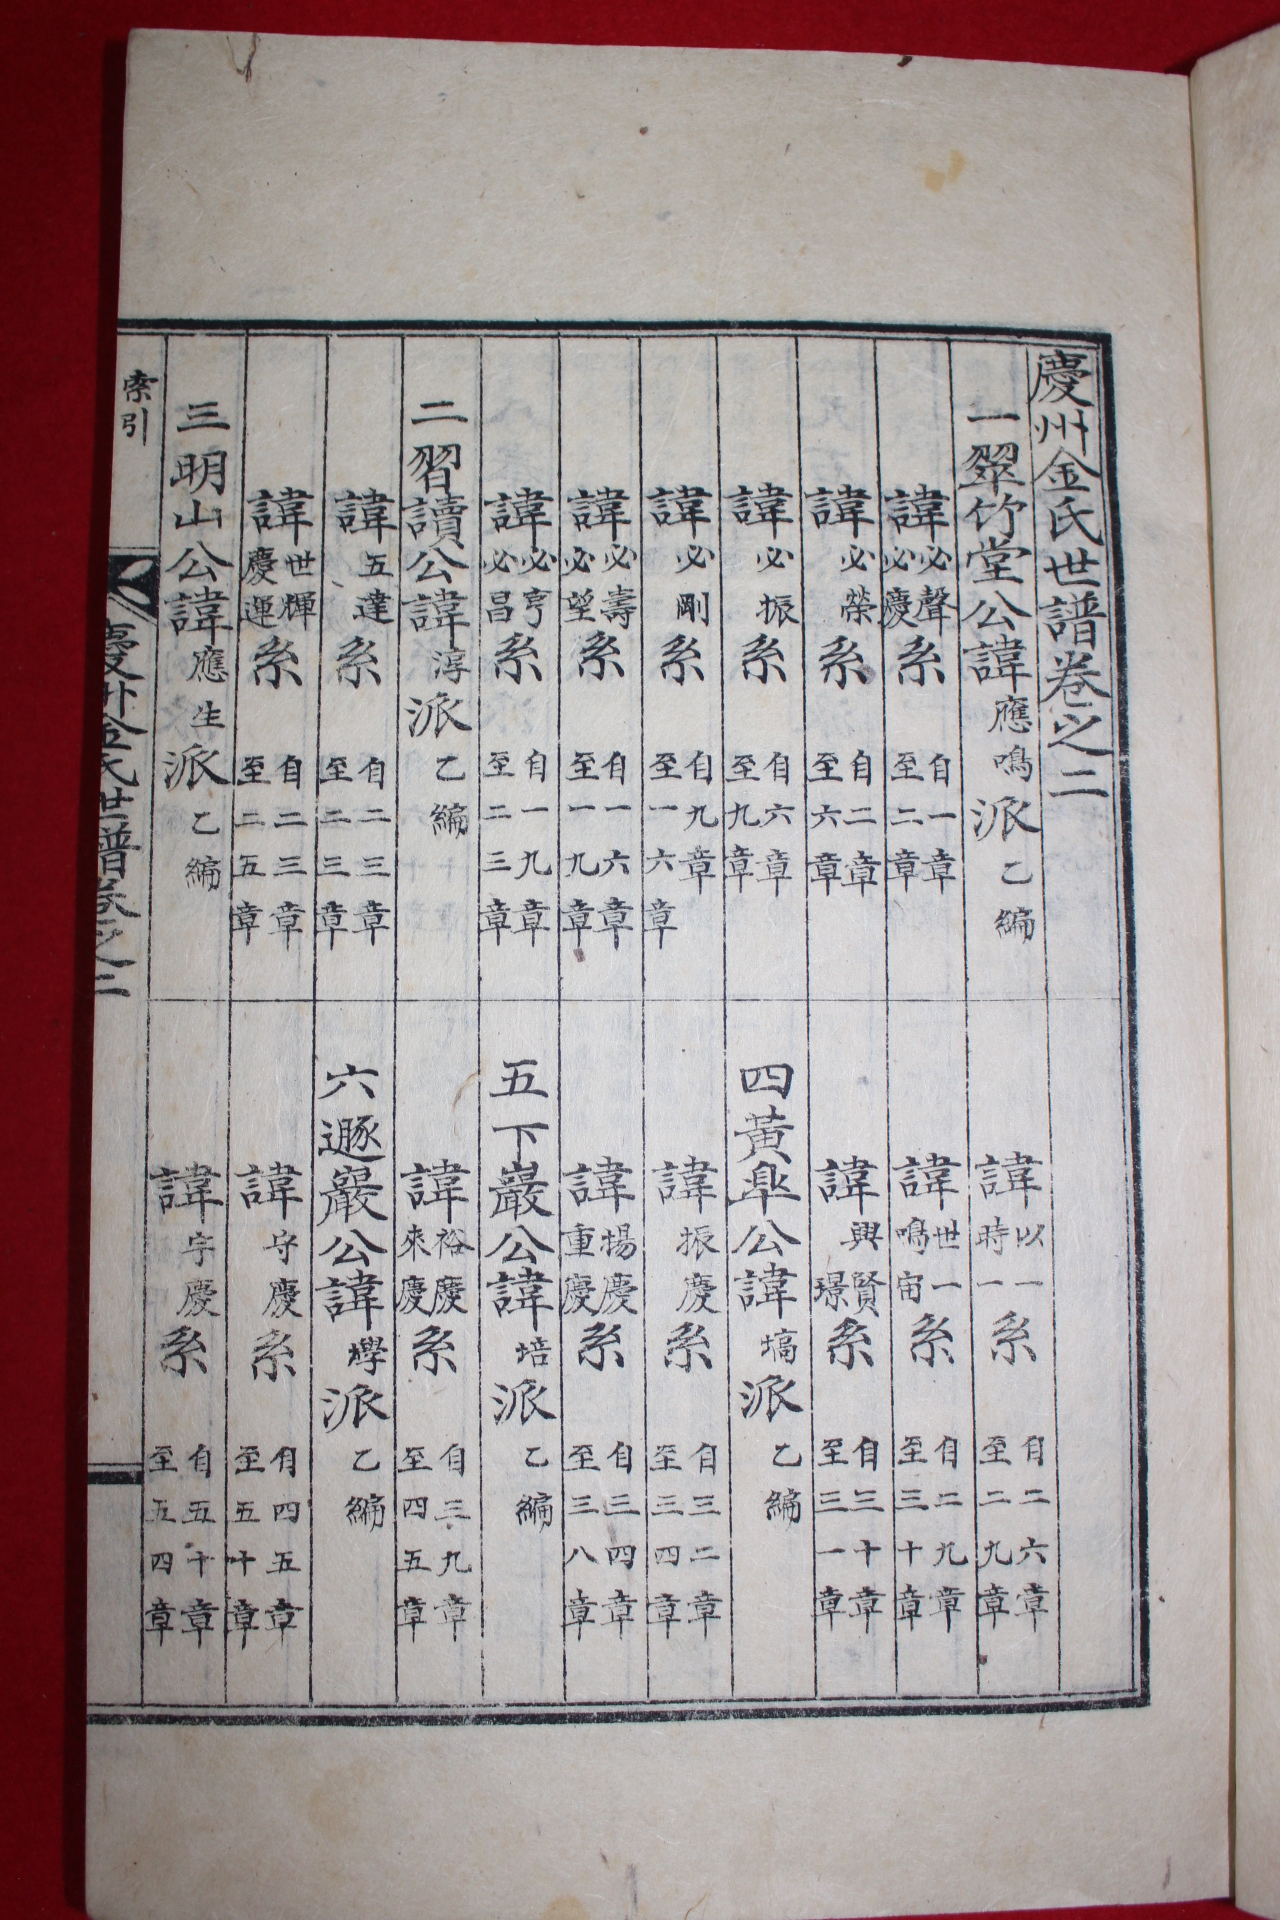 慶州金氏世譜卷之二
一翠竹堂公諱應鳴派乙編
諱必聲必慶系自一章至二章
諱必榮系自二章至六章
諱必振系自六章至九章
諱必剛系自九章至一六章
諱必壽必望系自一六章至一九章
諱必亨必昌系自一九章至二三章
二習讀公諱淳派乙編
諱五達系自二三章至二三章
諱世輝慶運系自二三章至二五章
三明山公諱應生派乙編
諱以一時一系自二六章至二九章
諱世一鳴宙系自二九章至三十章
諱興賢璟系自三十章至三一章
四黃皐公諱塙派乙編
諱振慶系自三二章至三四章
諱揚慶重慶系自三四章至三八章
五下巖公諱培派乙編
諱裕慶來慶系自三九章至四五章
六遯巖公諱壆派乙編
諱守慶系自四五章至五十章
諱宇慶系自五十章至五四章
索引
慶州金氏世譜卷之二